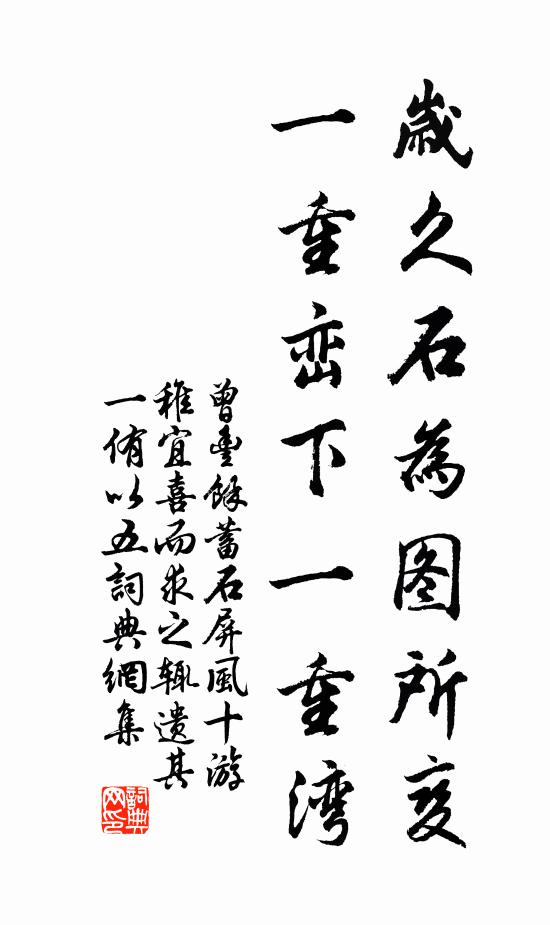 歲久石為图所变
一重峦下一重湾
曾豊餘蓄石屏風十游
稚宜喜而求之輒遗其
一侑以五詞典網集
詞典
网印